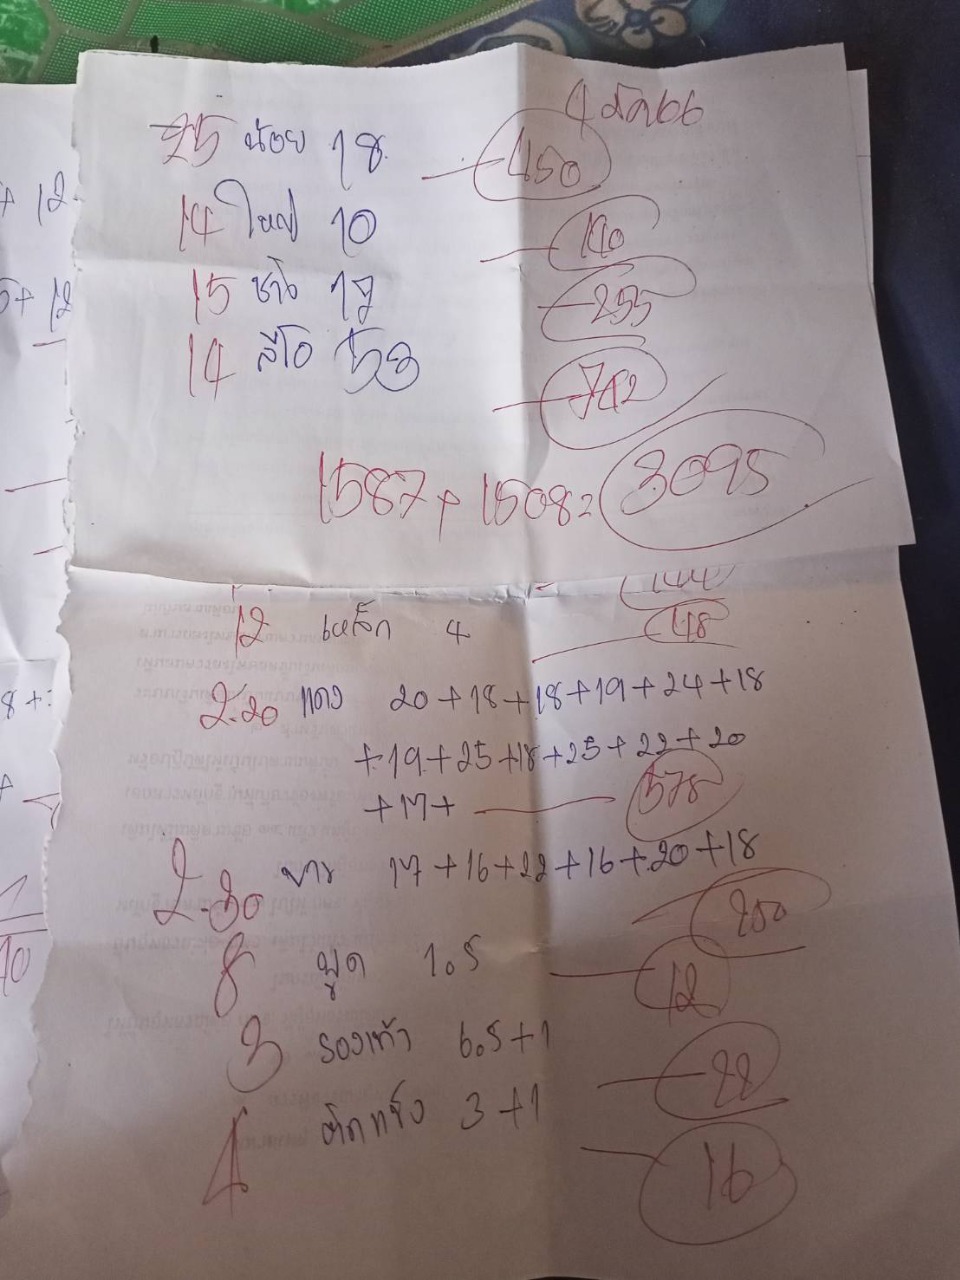 4 สิงค66
25 น้อย 18 450
14 ใหญ่ 10 140
15 ช้าง 17 255
14 ลีโอ 53 742
1587 + 1508 = 3095
144
12 เหล็ก 4 48
2.20 แดง 20+18+18+19+24+18
+19+25+18+25+22+20
+17+ 578
2.30 ขาว 17+16+22+16+20+18
250
8 พูด 1.5 12
3 รองเท้า 6.5+1 22
4 3+1 16
+ 12
5+ 12
8 +
+